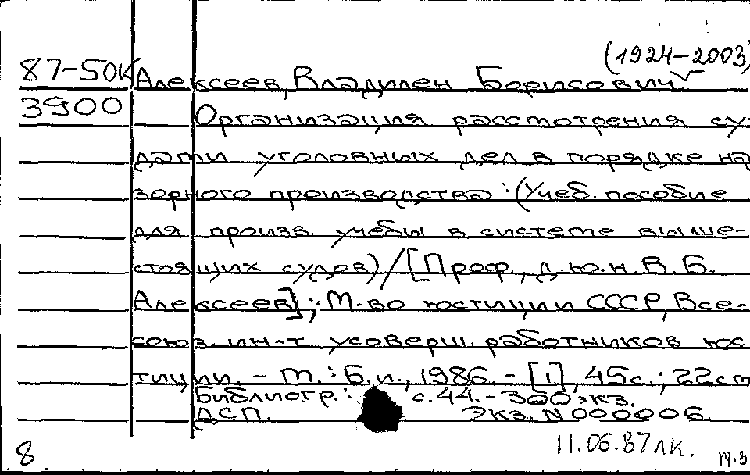 (1924-2003)
87-50К Алексеев, Владилен Борисович
3900 Организация рассмотрения су-
дами уголовных дел в порядке над-
зорного производства : (Учеб. пособие
для произв. учебы в системе выше-
стоящих судов) / [Проф., д.ю.н. В.Б.
Алексеев]; М-во юстиции СССР, Все-
союз. ин-т усоверш. работников юс-
тиции. – М. : Б.и., 1986. – [1], 45с.; 22см
Библиогр.: с.44. – 300 экз.
ДСП. Экз. N 000006
8 11.06.87 лк.